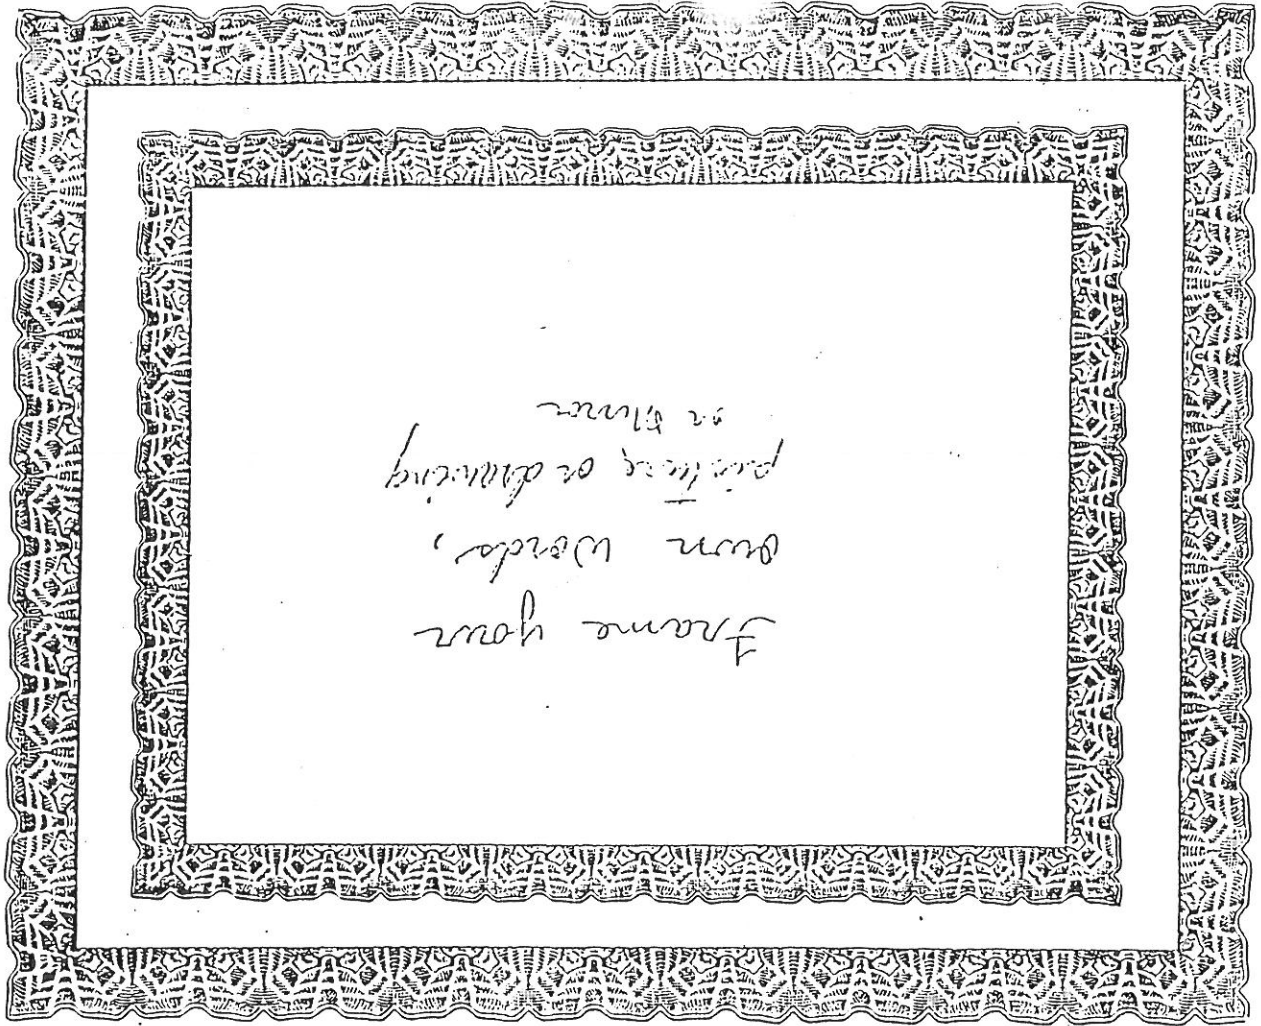 Frame your
own words,
picture, or drawing
or